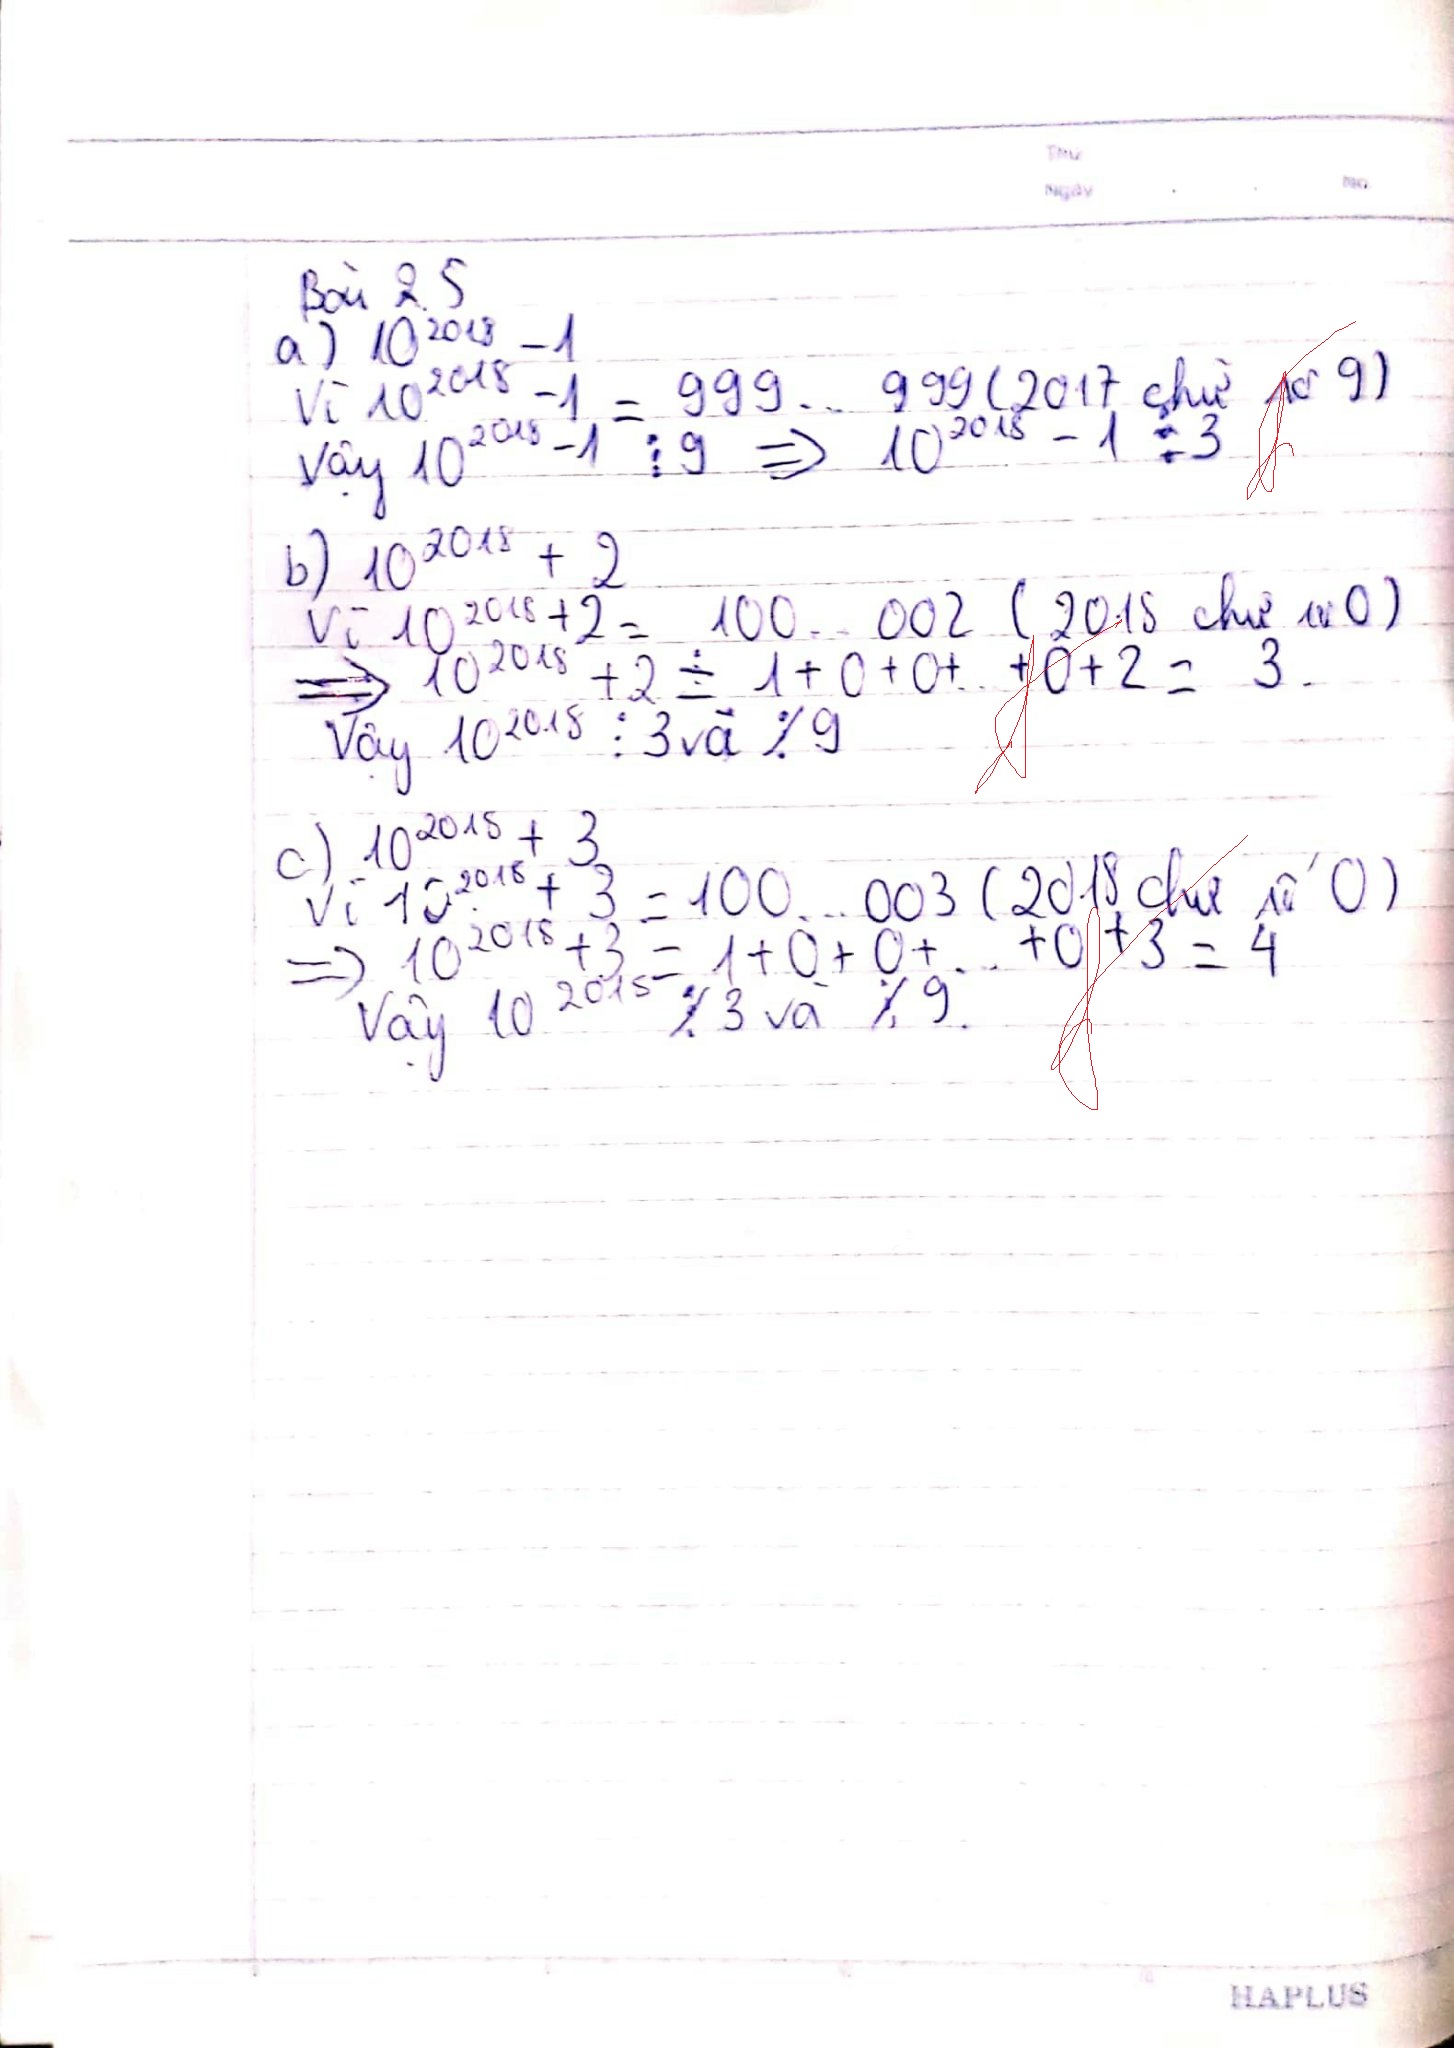 Thứ
Ngày . . No.
Bài 2.5
a) 10^2018 - 1
Vì 10^2018 - 1 = 999... 999 (2017 chữ số 9)
Vậy 10^2018 - 1 ⋮ 9 => 10^2018 - 1 ⋮ 3
b) 10^2018 + 2
Vì 10^2018 + 2 = 100... 002 (2018 chữ số 0)
=> 10^2018 + 2 = 1 + 0 + 0 + ... + 0 + 2 = 3.
Vậy 10^2018 ⋮ 3 và ⋮̸ 9
c) 10^2018 + 3
Vì 10^2018 + 3 = 100... 003 (2018 chữ số 0)
=> 10^2018 + 3 = 1 + 0 + 0 + ... + 0 + 3 = 4
Vậy 10^2018 ⋮̸ 3 và ⋮̸ 9.
HAPLUS